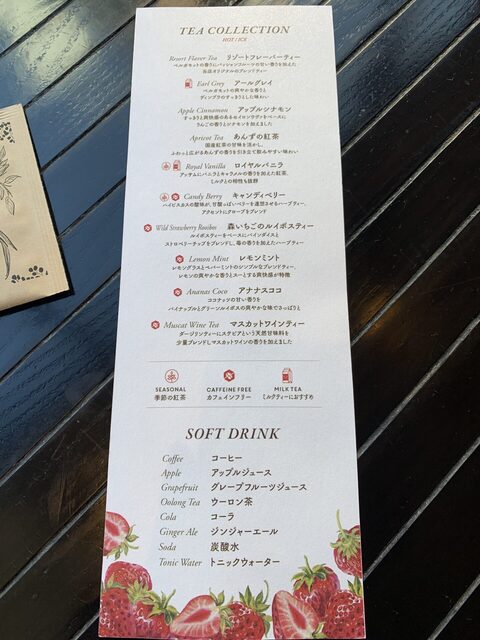 TEA COLLECTION
HOT / ICE
Resort Flavor Tea リゾートフレーバーティー
ベルガモットの香りにパッションフルーツの甘い香りを加えた
当店オリジナルのブレンドティー
Earl Grey アールグレイ
ベルガモットの爽やかな香りと
ディンブラのすっきりとした味わい
Apple Cinnamon アップルシナモン
すっきりと爽快感のあるセイロンラヴァをベースに
りんごの香りとシナモンを加えました
Apricot Tea あんずの紅茶
国産紅茶の甘味を活かし、
ふわっと広がるあんずの香りを引き立て飲みやすい味わい
Royal Vanilla ロイヤルバニラ
アッサムにバニラとキャラメルの香りを加えた紅茶、
ミルクとの相性も抜群
Candy Berry キャンディベリー
ハイビスカスの酸味が、甘酸っぱいベリーを連想させるハーブティー、
アクセントにクローブをブレンド
Wild Strawberry Rooibos 森いちごのルイボスティー
ルイボスティーをベースにパインダイスと
ストロベリーチップをブレンドし、苺の香りを加えたハーブティー
Lemon Mint レモンミント
レモングラスとペパーミントのシンプルなブレンドティー、
レモンの爽やかな香りとスーとする爽快感が特徴
Ananas Coco アナナスココ
ココナッツの甘い香りを
パイナップルとグリーンルイボスの爽やかな味でさっぱりと
Muscat Wine Tea マスカットワインティー
ダージリンティーにステビアという天然甘味料を
少量ブレンドしマスカットワインの香りを加えました
SEASONAL
季節の紅茶
CAFFEINE FREE
カフェインフリー
MILK TEA
ミルクティーにおすすめ
SOFT DRINK
Coffee コーヒー
Apple アップルジュース
Grapefruit グレープフルーツジュース
Oolong Tea ウーロン茶
Cola コーラ
Ginger Ale ジンジャーエール
Soda 炭酸水
Tonic Water トニックウォーター